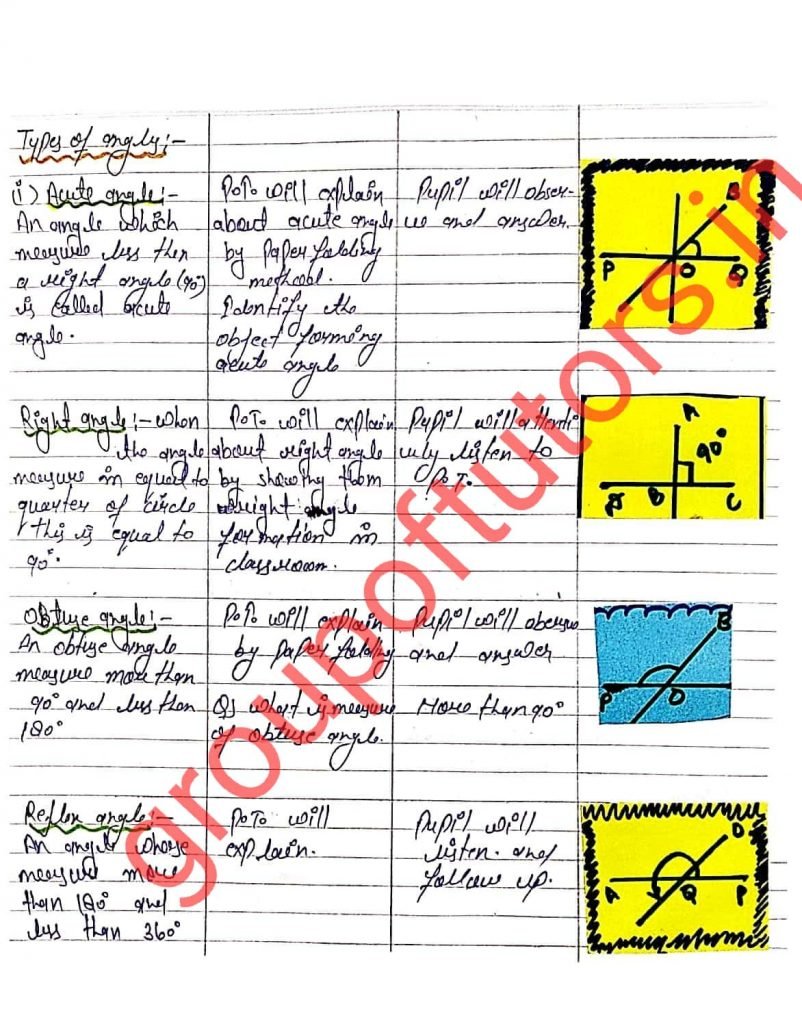 Types of angles:-
(i) Acute angle:-
An angle which
measure less then
a right angle (90°)
is called acute
angle.
P.T. will explain
about acute angle
by paper folding
methood.
Identify the
object forming
acute angle
Pupil will obser-
ve and answer.
B
P
O
Right angle:- when
the angle
measure in equal to
quarter of circle
this is equal to
90°.
P.T. will explain
about right angle
by showing them
right angle
formation in
classroom.
Pupil will attenti
vely listen to
P.T.
A
90°
B
C
Obtuse angle:-
An obtuse angle
measure more than
90° and less than
180°
P.T. will explain
by paper folding
Q) what is measure
of obtuse angle.
Pupil will observe
and answer
More than 90°
B
P
O
Reflex angle:-
An angle whose
measure more
than 180° and
less than 360°
P.T. will
explain.
Pupil will
listen and
follow up.
O
A
Q
P
groupoftutors.in